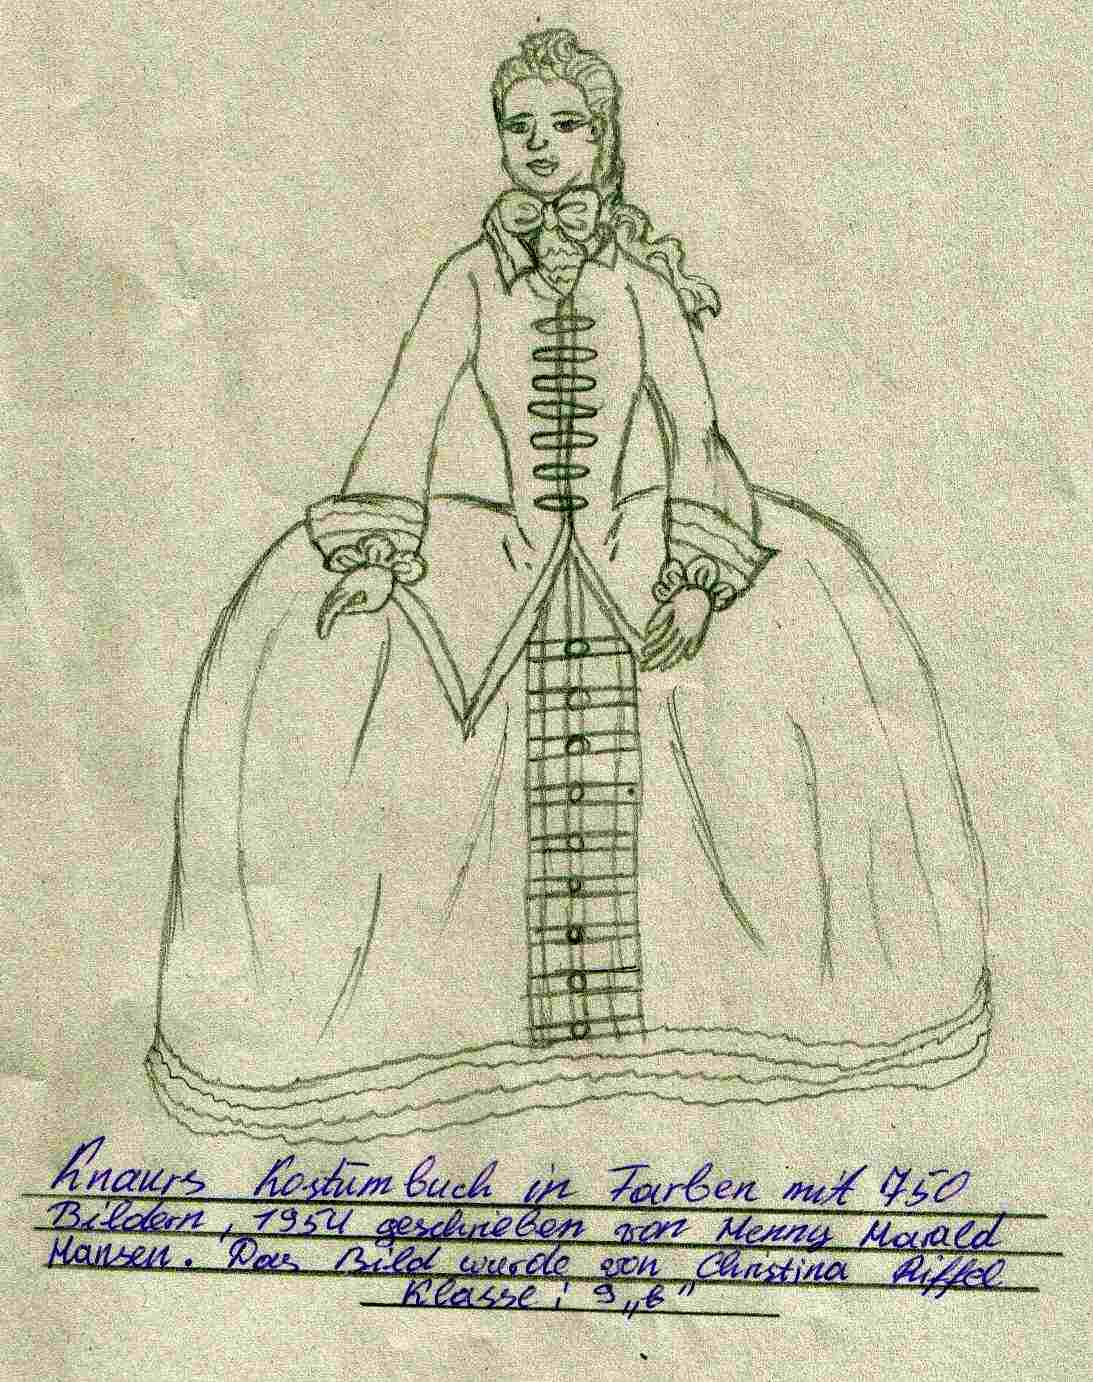 Knaurs Kostümbuch in Farben mit 750
Bildern, 1954 geschrieben von Henny Harald
Hansen. Das Bild wurde von Christina Riffel
Klasse: 9 „b"